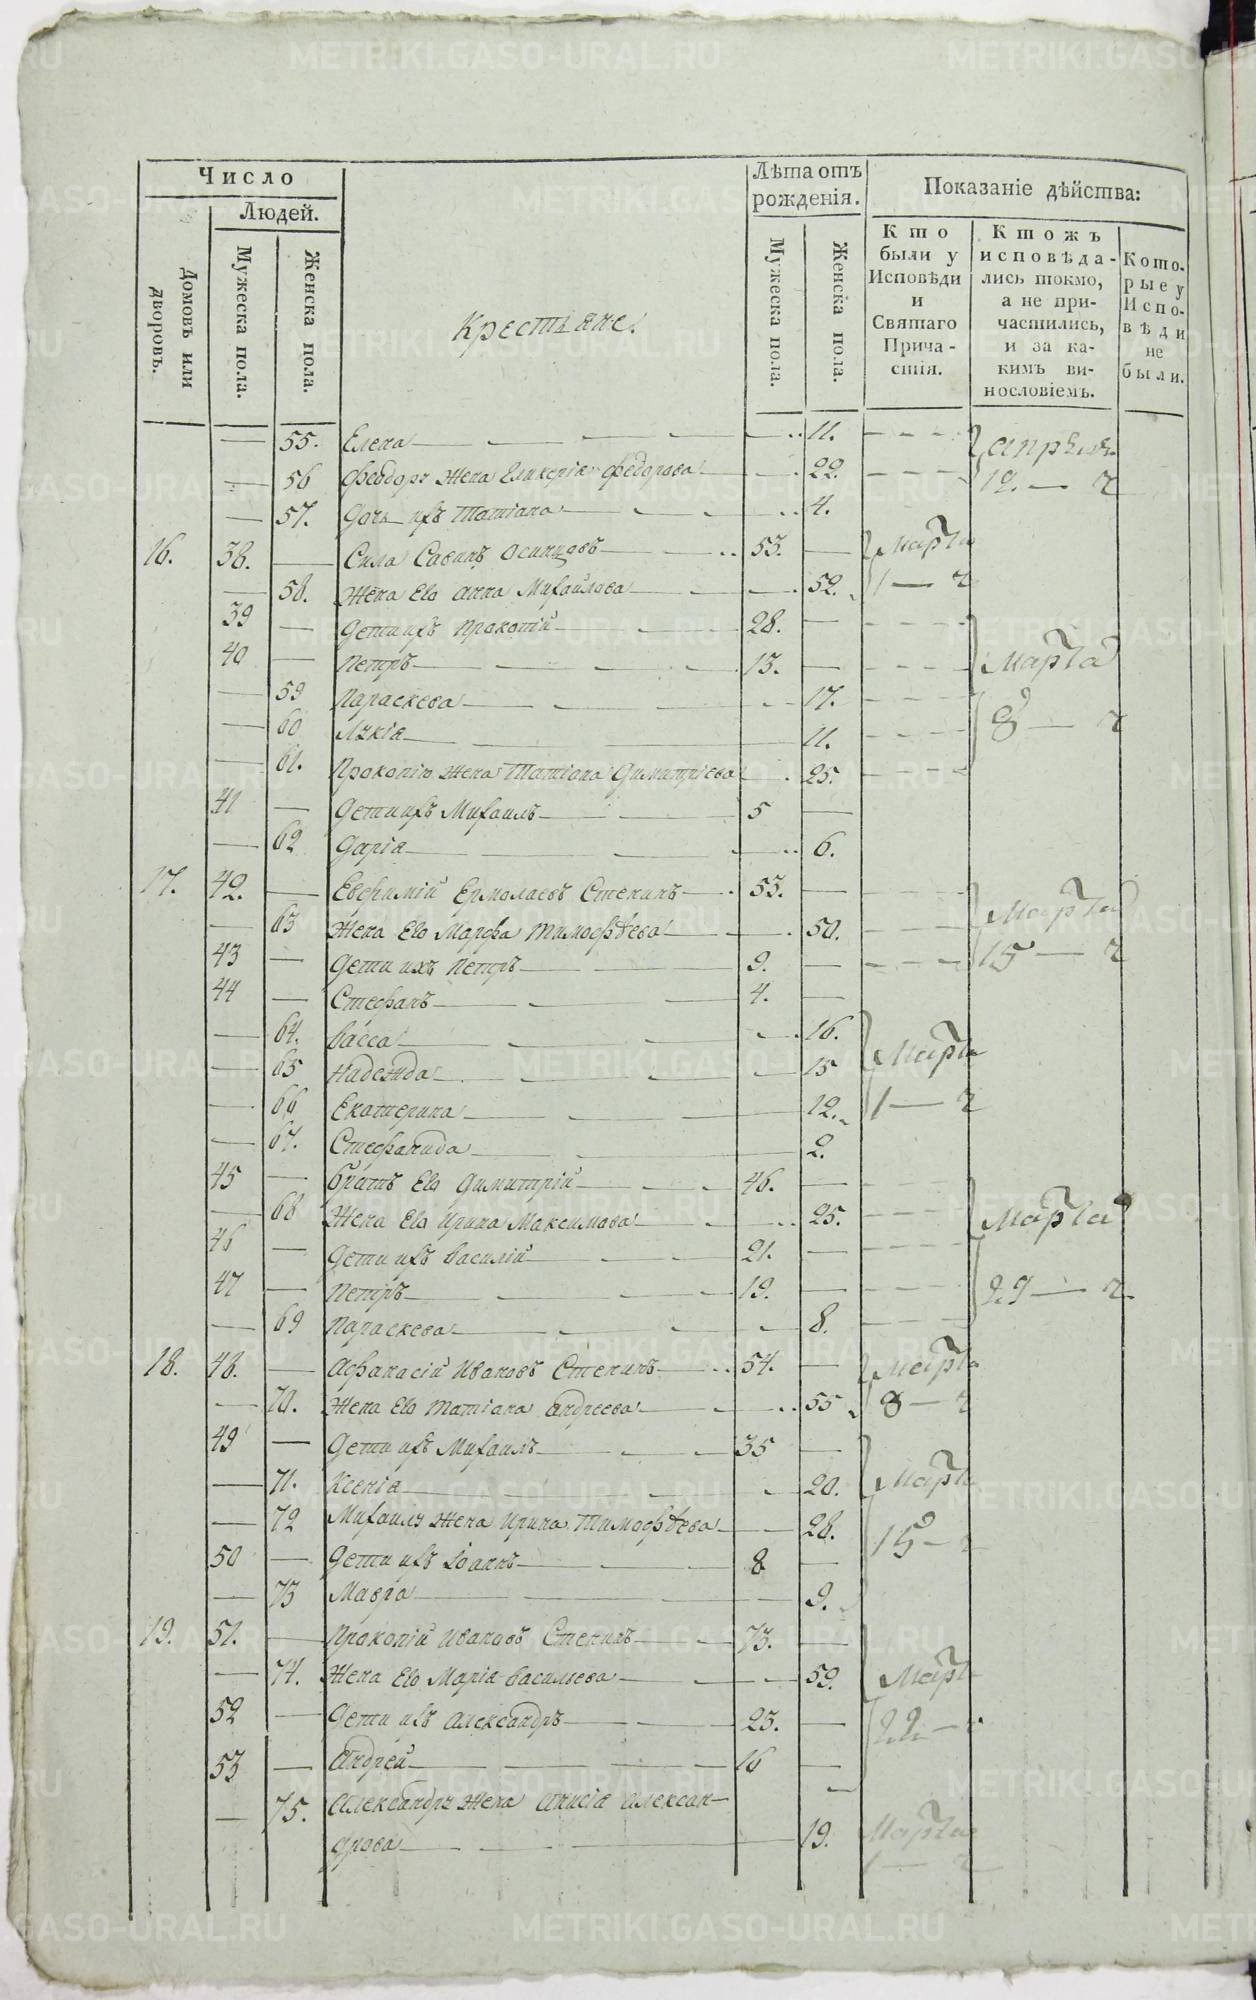 METRIKI.GASO-URAL.RU
Число
Людей.
Домовъ или дворовъ.
Мужеска пола.
Женска пола.
Крестіяне.
Лѣта отъ рожденія.
Мужеска пола.
Женскіа пола.
Показаніе дѣйства:
Кто были у Исповѣди и Святаго Прича-стія.
Ктожъ исповѣда-лись токмо, а не при-частились, и за ка-кимъ ви-нословіемъ.
Кото-рые у Испо-вѣди не были.
— 55. Елена — 11. апрѣля
— 56 Феодору жена Гликерія Федорова — 22. 12. — ч
— 57. Дочь ихъ Татіана — 4.
16. 38. — Сила Савинъ Осинцовъ — 53. — Марта
— 58. Жена Его Анна Михайлова — 52. 1 — ч
39 — Дети ихъ Прокопій — 28. —
40 — Петръ — 13. — Марта
— 59 Параскева — 17.
— 60 Лукіа — 11. 8 — ч
— 61. Прокопію жена Татіана Димитріева — 25.
41 — Дети ихъ Михаилъ — 5 —
— 62 Даріа — 6.
17. 42. — Евфимій Ермолаевъ Стенинъ — 53. —
— 63 Жена Его Марфа Тимофѣева — 50. Марта
43 — Дети ихъ Петръ — 9. — 15 — ч
44 — Стефанъ — 4. —
— 64. Васса — 16.
— 65 Надежда — 15 Марта
— 66 Екатерина — 12. 1 — ч
— 67. Стефанида — 2.
45 — Братъ Его Димитрій — 46. —
— 68 Жена Его Ирина Максимова — 25. Марта
46 — Дети ихъ Василій — 21. —
47 — Петръ — 19. — 29 — ч
— 69 Параскева — 8.
18. 48. — Афанасій Ивановъ Стенинъ — 54. — Марта
— 70. Жена Его Татіана Андреева — 55 8 — ч
49 — Дети ихъ Михаилъ — 35 —
— 71. Ксеніа — 20. Марта
— 72 Михаилу жена Ирина Тимофѣева — 28. 15 — ч
50 — Дети ихъ Іоаннъ — 8 —
— 73 Мавра — 9.
19. 51. — Прокопій Ивановъ Стенинъ — 73. —
— 74. Жена Его Маріа Васильева — 59. Марта
52 — Дети ихъ Александръ — 23. — 22 —
53 — Андрей — 16 —
— 75. Александру жена Анисіа Алексан-
дрова — 19. Марта
1 — ч